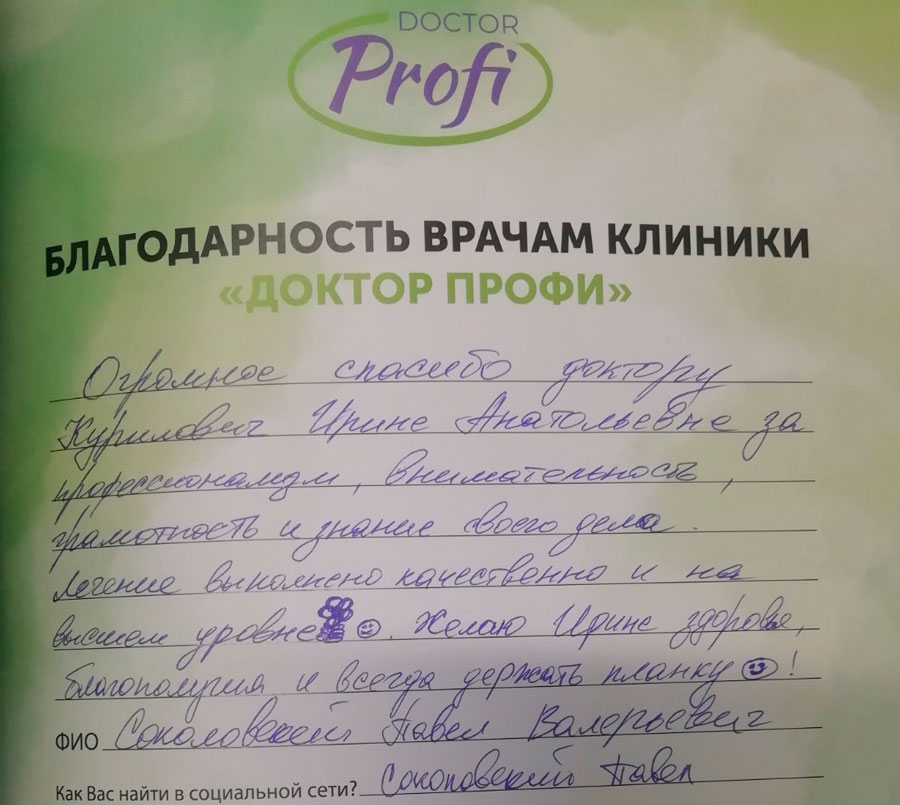 DOCTOR
Profi
БЛАГОДАРНОСТЬ ВРАЧАМ КЛИНИКИ
«ДОКТОР ПРОФИ»
Огромное спасибо доктору
Курилович Ирине Анатольевне за
профессионализм, внимательность,
грамотность и знание своего дела.
Лечение выполнено качественно и на
высшем уровне ☺. Желаю Ирине здоровья,
благополучия и всегда держать планку ☺!
ФИО Соколовский Павел Валерьевич
Как Вас найти в социальной сети? Соколовский Павел